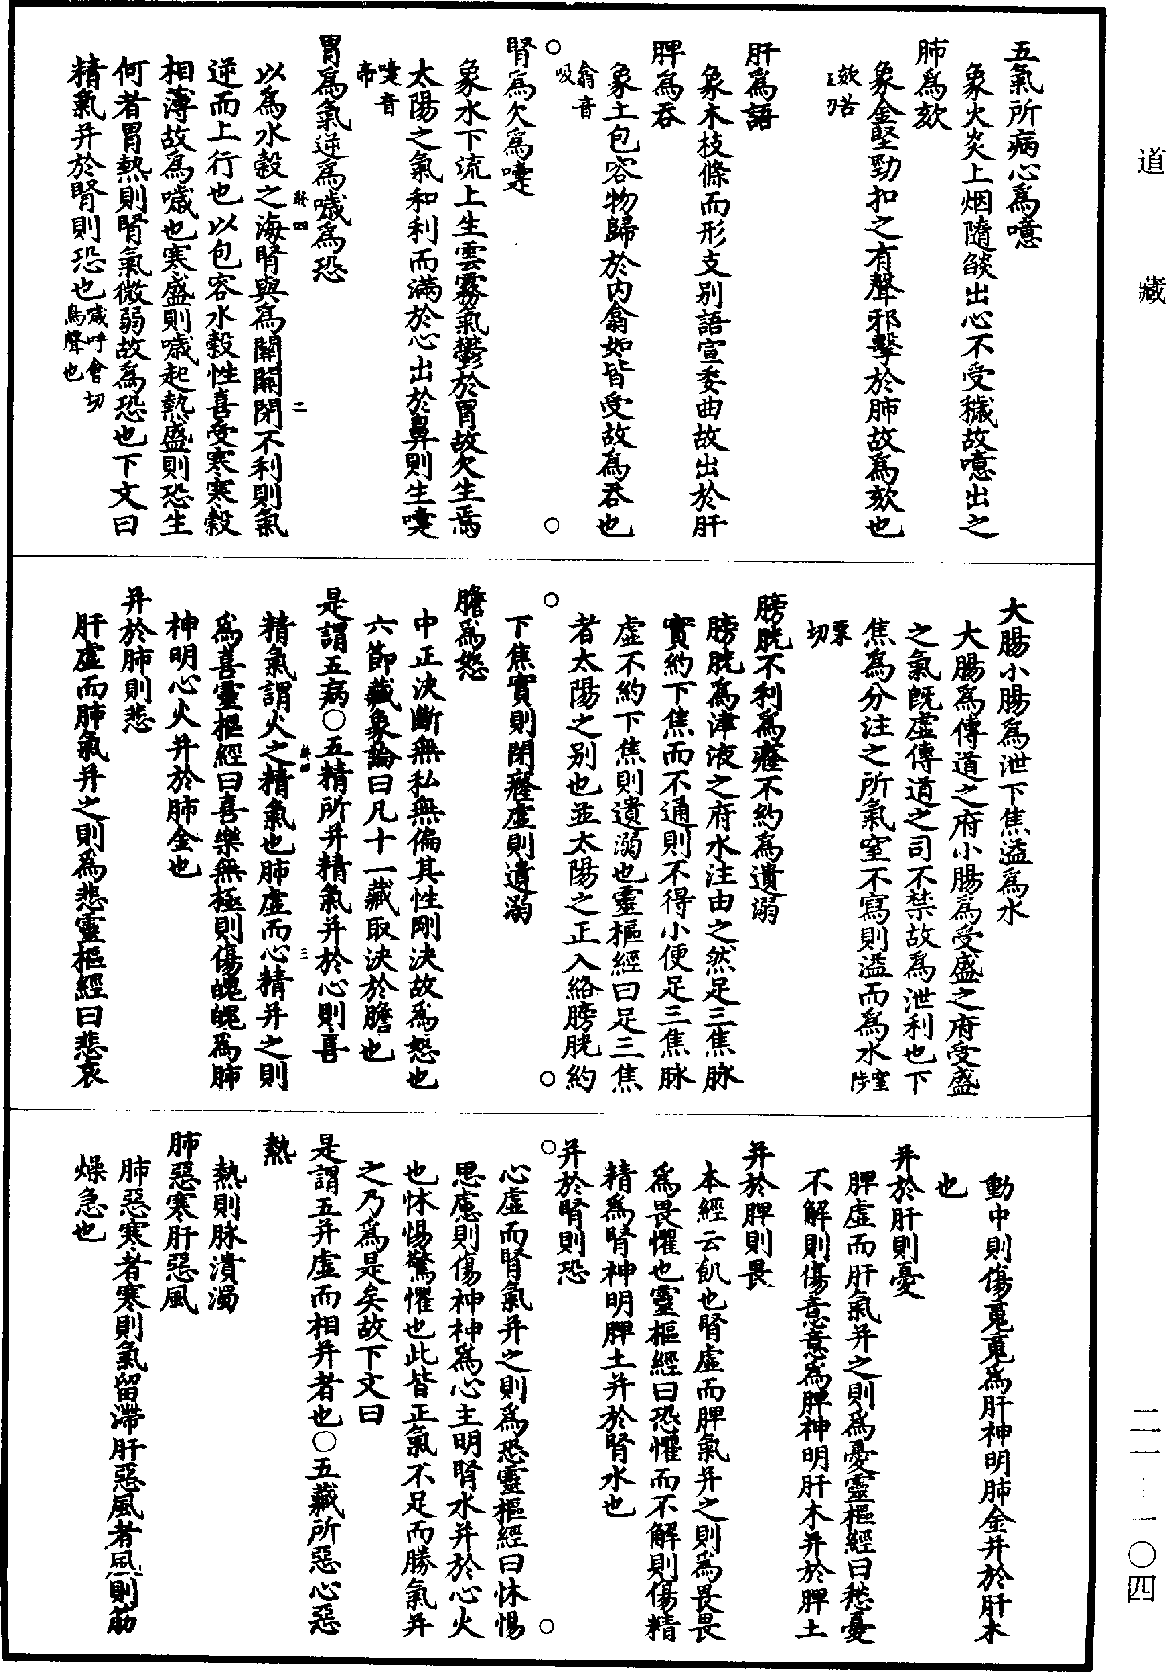 道藏
二一一一〇四
五氣所病心爲噫
象火炎上烟隨燄出心不受穢故噫出之
肺爲欬
象金堅勁扣之有聲邪擊於肺故爲欬也
欬苦
肝爲語
象木枝條而形支別語宣委曲故出於肝
脾爲吞
象土包容物歸於內翕如皆受故爲吞也
翕音
吸
腎爲欠爲嚏
象水下流上生雲霧氣鬱於胃故欠生焉
太陽之氣和利而滿於心出於鼻則生嚏
嚏音
帝
胃爲氣逆爲噦爲恐
以爲水穀之海腎與爲關關閉不利則氣
逆而上行也以包容水穀性喜受寒寒穀
相薄故爲噦也寒盛則噦起熱盛則恐生
何者胃熱則腎氣微弱故爲恐也下文曰
精氣并於腎則恐也噦呼會切
鳥聲也
大腸小腸爲泄下焦溢爲水
大腸爲傳道之府小腸爲受盛之府受盛
之氣既虛傳道之司不禁故爲泄利也下
焦爲分注之所氣窒不寫則溢而爲水窒
陟
栗
切
膀胱不利爲癃不約爲遺溺
膀胱爲津液之府水注由之然足三焦脉
實約下焦而不通則不得小便足三焦脉
虛不約下焦則遺溺也靈樞經曰足三焦
者太陽之別也並太陽之正入絡膀胱約
下焦實則閉癃虛則遺溺
膽爲怒
中正決斷無私無偏其性剛決故爲怒也
六節藏象論曰凡十一藏取決於膽也
是謂五病〇五精所并精氣并於心則喜
精氣謂火之精氣也肺虛而心精并之則
爲喜靈樞經曰喜樂無極則傷魄魄爲肺
神明心火并於肺金也
并於肺則悲
肝虛而肺氣并之則爲悲靈樞經曰悲哀
動中則傷䰟䰟爲肝神明肺金并於肝木
也
并於肝則憂
脾虛而肝氣并之則爲憂靈樞經曰愁憂
不解則傷意意爲脾神明肝木并於脾土
并於脾則畏
本經云飢也腎虛而脾氣并之則爲畏畏
爲畏懼也靈樞經曰恐懼而不解則傷精
精爲腎神明脾土并於腎水也
并於腎則恐
心虛而腎氣并之則爲恐靈樞經曰怵惕
思慮則傷神神爲心主明腎水并於心火
也怵惕驚懼也此皆正氣不足而勝氣并
之乃爲是矣故下文曰
是謂五并虛而相并者也〇五藏所惡心惡
熱
熱則脉潰濁
肺惡寒肝惡風
肺惡寒者寒則氣留滯肝惡風者風則筋
燥急也